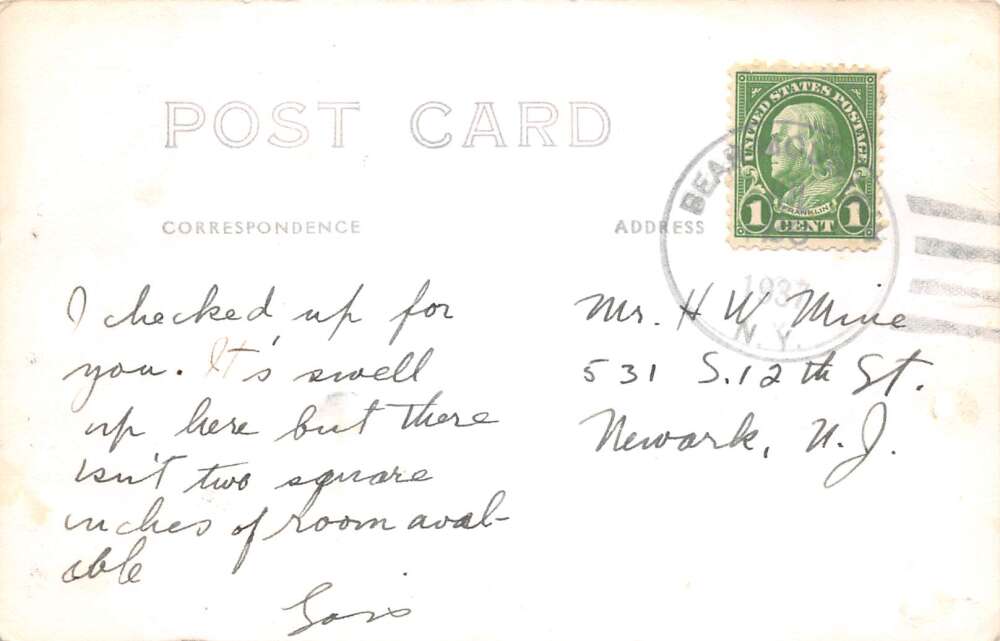 POST CARD
UNITED STATES POSTAGE
FRANKLIN
1 CENT 1
BEAR
1937
N.Y.
CORRESPONDENCE
ADDRESS
I checked up for
you. It's swell
up here but there
isn't two square
inches of room avail-
able
Lois
Mr. H W Mine
531 S. 12th St.
Newark, N. J.